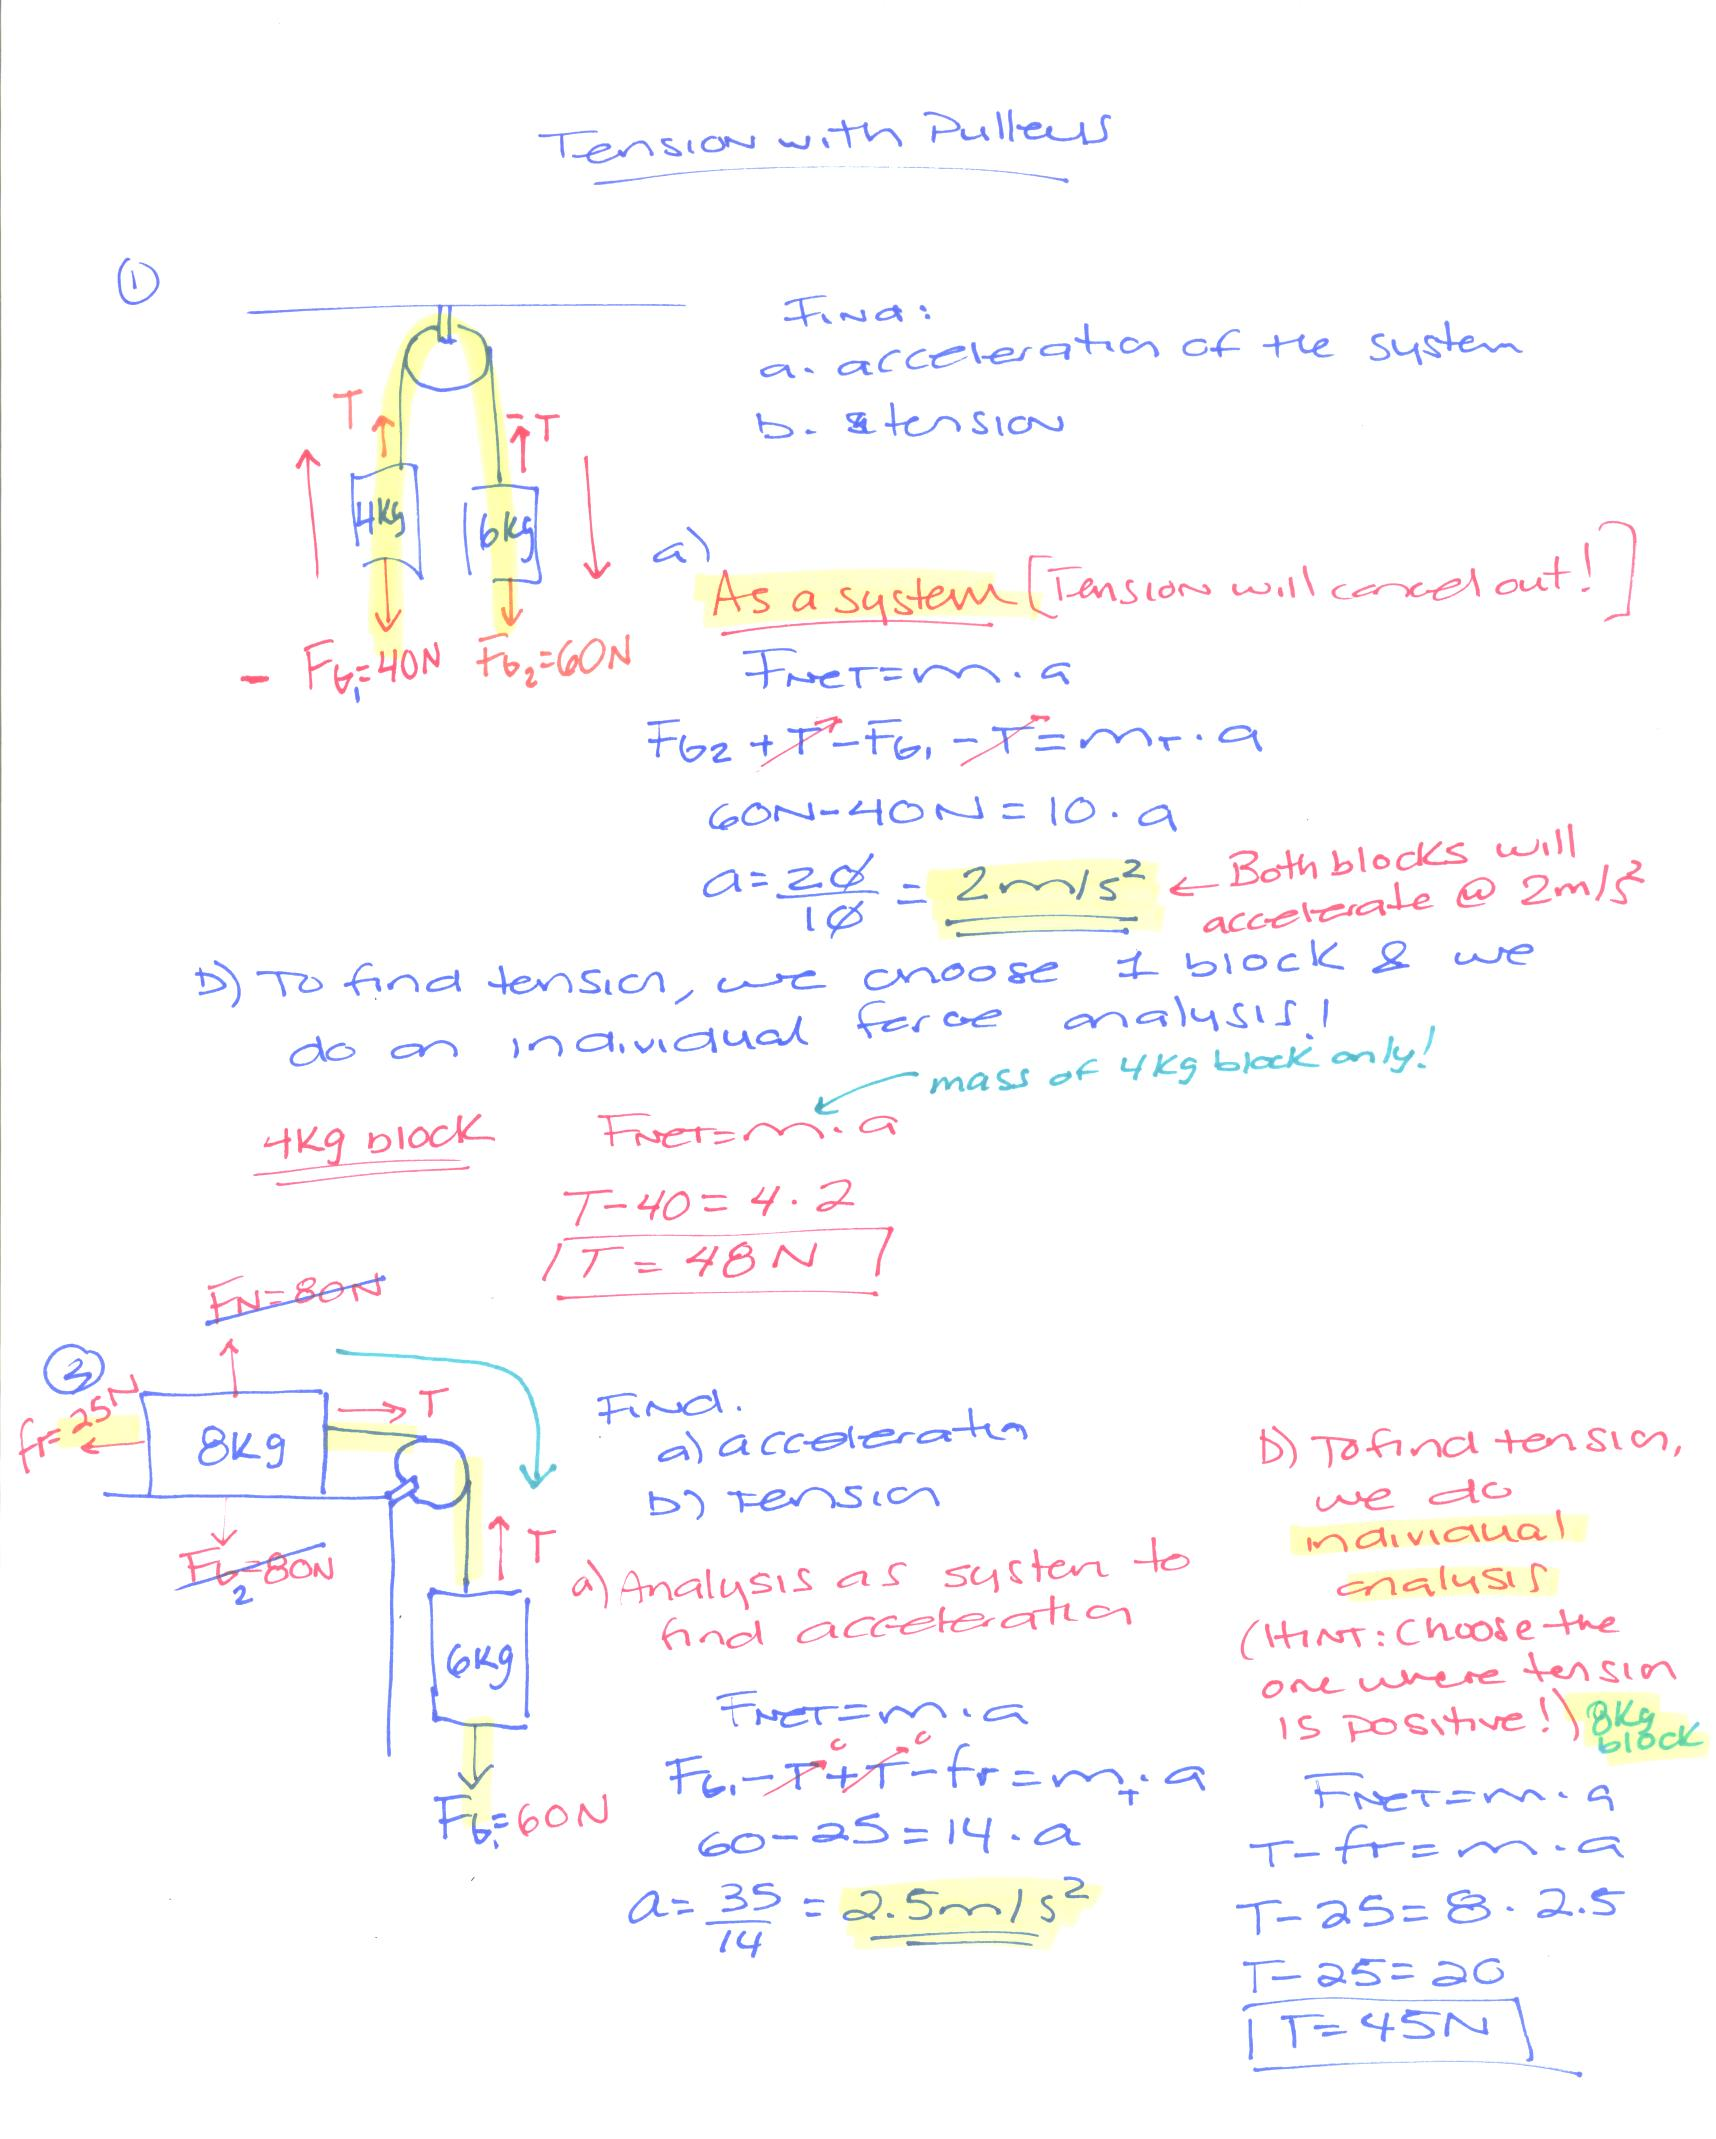 Tension with Pulleys
①
Find:
a. acceleration of the system
b. tension
T
T
4kg
6kg
- FG₁=40N FG₂=60N
a)
As a system [Tension will cancel out!]
FNET=m·a
FG2+T-FG₁-T=mT·a
60N-40N=10·a
a=20/10=2m/s² ← Both blocks will
accelerate @ 2m/s²
b) To find tension, we choose 1 block & we
do an individual force analysis!
mass of 4kg block only!
4kg block
FNET=m·a
T-40=4·2
T=48N
FN=80N
②
fr=25N
8kg
T
FG2=80N
T
6kg
FG₁=60N
Find.
a) acceleration
b) tension
a) Analysis as system to
find acceleration
FNET=m·a
FG₁-T+T-fr=mT·a
60-25=14·a
a=35/14=2.5m/s²
b) To find tension,
we do
individual
analysis
(HINT: Choose the
one where tension
is positive!) 8kg
block
FNET=m·a
T-fr=m·a
T-25=8·2.5
T-25=20
T=45N